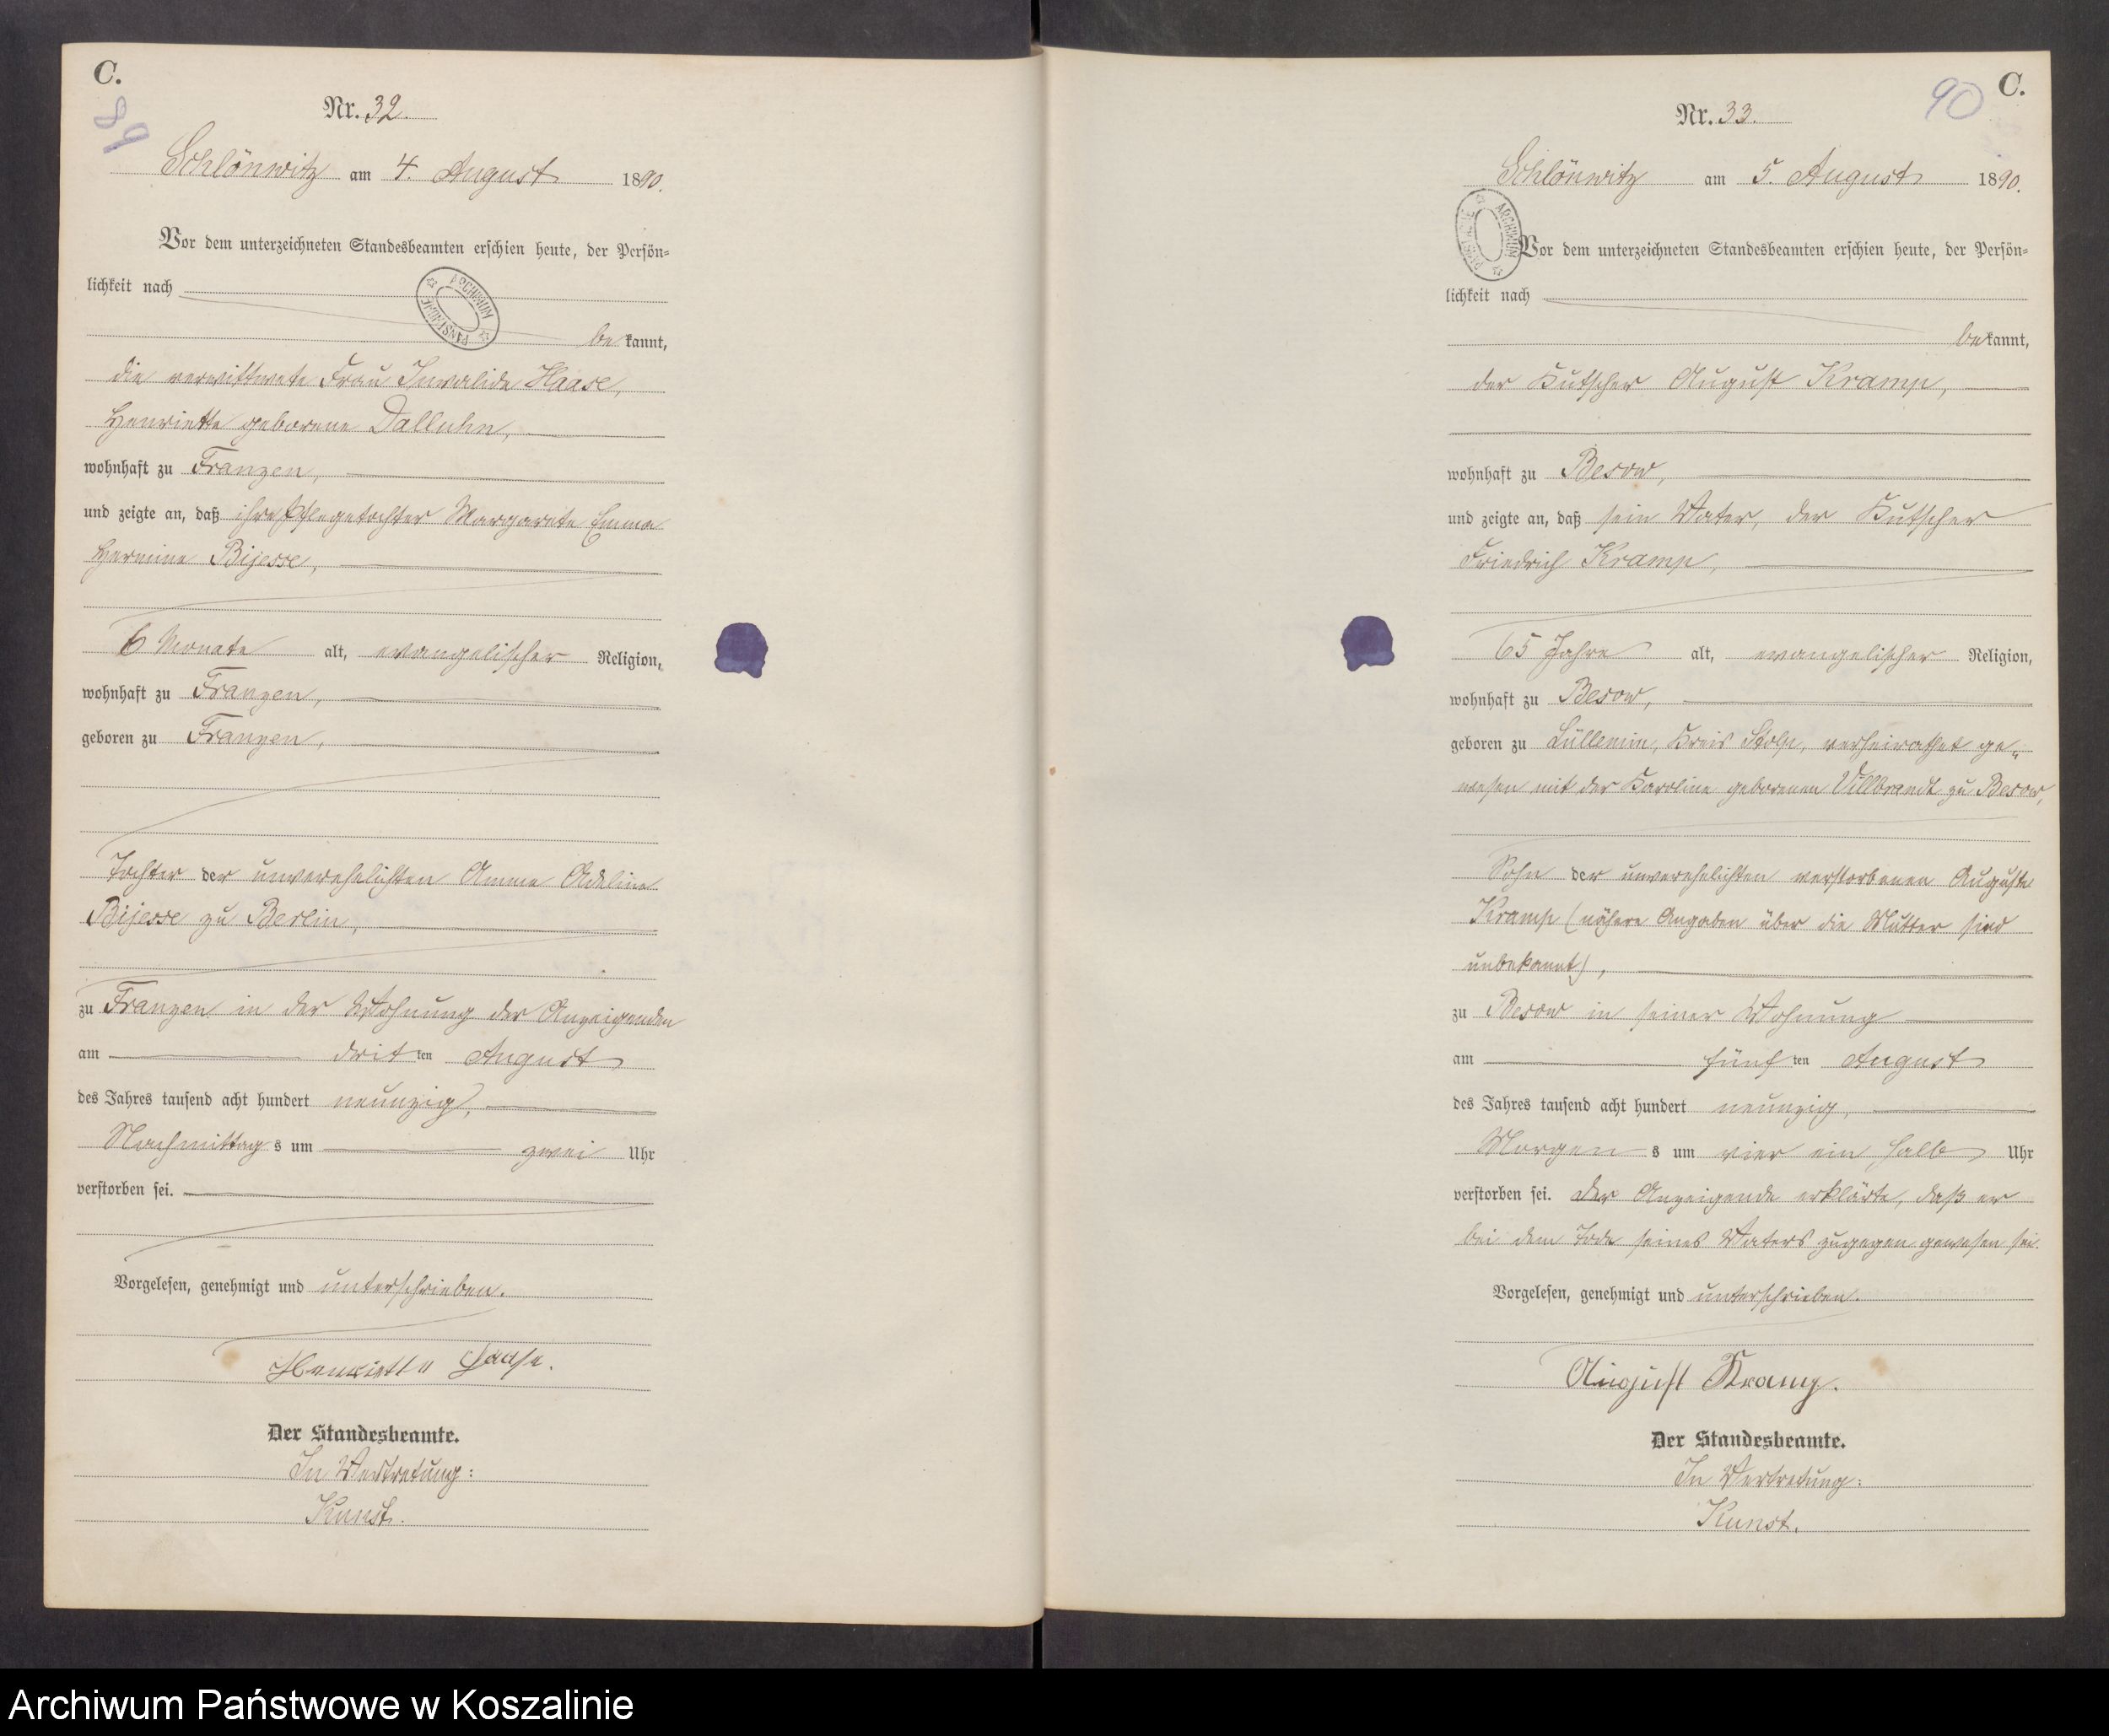 C.
89
Nr. 32.
Schlönwitz am 4. August 1890.
Vor dem unterzeichneten Standesbeamten erschien heute, der Persön=
lichkeit nach
ARCHIWUM PAŃSTWOWE
bekannt,
die verwittwete Frau Invalide Haase,
Henriette geborene Dalluhn,
wohnhaft zu Franzen,
und zeigte an, daß ihre Pflegetochter Margarete Emma
Hermine Bijesse,
6 Monate alt, evangelischer Religion,
wohnhaft zu Franzen,
geboren zu Franzen,
Tochter der unverehelichten Amme Adeline
Bijesse zu Berlin,
zu Franzen in der Wohnung der Anzeigenden
am dritten August
des Jahres tausend acht hundert neunzig,
Nachmittags um zwei Uhr
verstorben sei.
Vorgelesen, genehmigt und unterschrieben.
Henriette Haase.
Der Standesbeamte.
In Vertretung:
Kunst.
C.
90
Nr. 33.
Schlönwitz am 5. August 1890.
ARCHIWUM PAŃSTWOWE
Vor dem unterzeichneten Standesbeamten erschien heute, der Persön=
lichkeit nach
bekannt,
der Kutscher August Kramp,
wohnhaft zu Besow,
und zeigte an, daß sein Vater, der Kutscher
Friedrich Kramp,
65 Jahre alt, evangelischer Religion,
wohnhaft zu Besow,
geboren zu Lüllemin, Kreis Stolp, verheirathet ge„
wesen mit der Karoline geborenen Villbrandt zu Besow,
Sohn der unverehelichten verstorbenen Auguste
Kramp (nähere Angaben über die Mutter sind
unbekannt),
zu Besow in seiner Wohnung
am fünften August
des Jahres tausend acht hundert neunzig,
Morgens um vier ein halb Uhr
verstorben sei. Der Anzeigende erklärte, daß er
bei dem Tode seines Vaters zugegen gewesen sei.
Vorgelesen, genehmigt und unterschrieben.
August Kramp.
Der Standesbeamte.
In Vertretung:
Kunst.
Archiwum Państwowe w Koszalinie